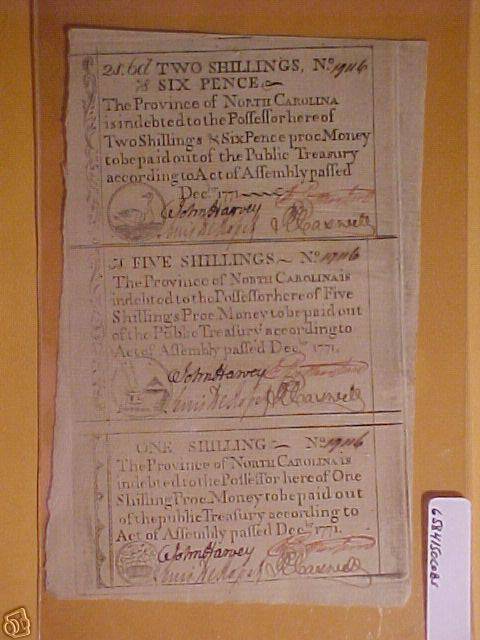 2s.6d TWO SHILLINGS, No.
& SIX PENCE
The Province of NORTH CAROLINA
is indebted to the Possessor hereof
Two Shillings & Six Pence proc. Money
to be paid out of the Public Treasury
according to Act of Assembly passed
Decr. 1771
John Harvey
Lewis De Rosset R Caswell
FIVE SHILLINGS No.
The Province of NORTH CAROLINA is
indebted to the Possessor hereof Five
Shillings Proc. Money to be paid out
of the Public Treasury according to
Act of Assembly passed Decr. 1771.
John Harvey
Lewis De Rosset R Caswell
ONE SHILLING No.
The Province of NORTH CAROLINA is
indebted to the Possessor hereof One
Shilling Proc. Money to be paid out
of the public Treasury according to
Act of Assembly passed Decr. 1771.
John Harvey
Lewis De Rosset R Caswell